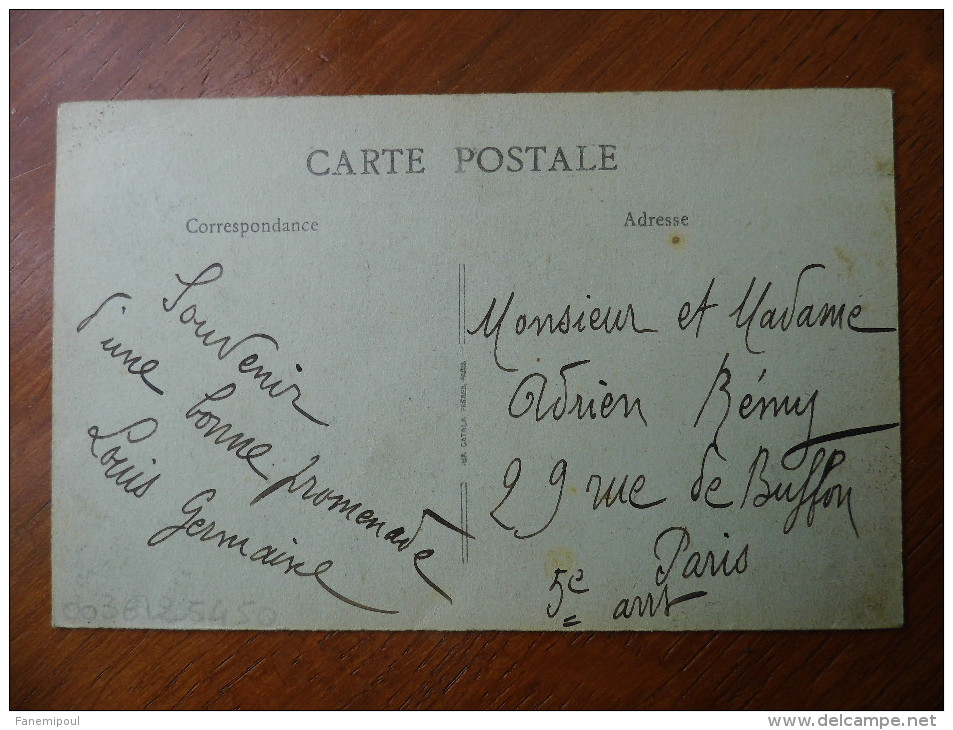 CARTE POSTALE
Correspondance
Souvenir
d'une bonne promenade
Louis Germaine
Adresse
Monsieur et Madame
Adrien Rémy
29 rue de Buffon
Paris
5e arrt
CATALA FRERES, PARIS
Fanemipoul
www.delcampe.net